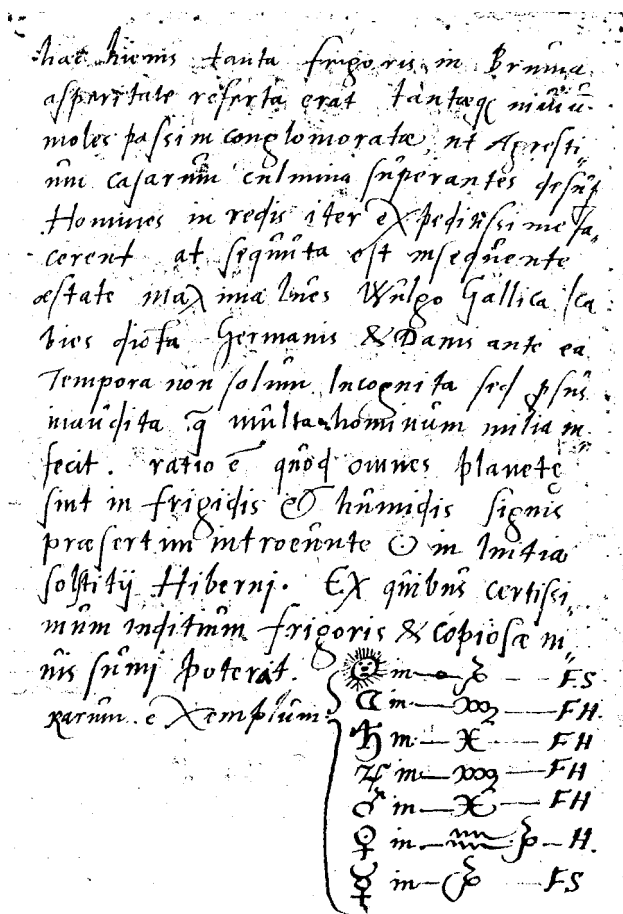 hac hiemis tanta frigoris in Bruma
asperitate referta erat tantæq; niuiũ
moles passim conglomoratæ, ut Agresti=
um casarum culmina superantes desup
Homines in redis iter expeditissime fa=
cerent at sequuta est insequente
æstate maxima lues Wulgo Gallica sca
bies dicta Germanis & Danis ante ea
Tempora non solum Incognita sed ꝓsus
inaudita q̃ multa hominum milia in
fecit. ratio ẽ quod omnes planetę
sint in frigidis & humidis signis
præsertim introeunte ☉ in Initia
solstitij Hiberni. Ex quibus certissi=
mum inditium frigoris & copiosæ ni=
uis sumi poterat.
Rarum exemplum.
☉ in — ♑ — F.S
☾ in — ♏ — F.H.
♄ in — ♓ — FH
♃ in — ♏ — FH
♂ in — ♓ — FH
♀ in — ♒ ♑ — H.
☿ in — ♑ — FS